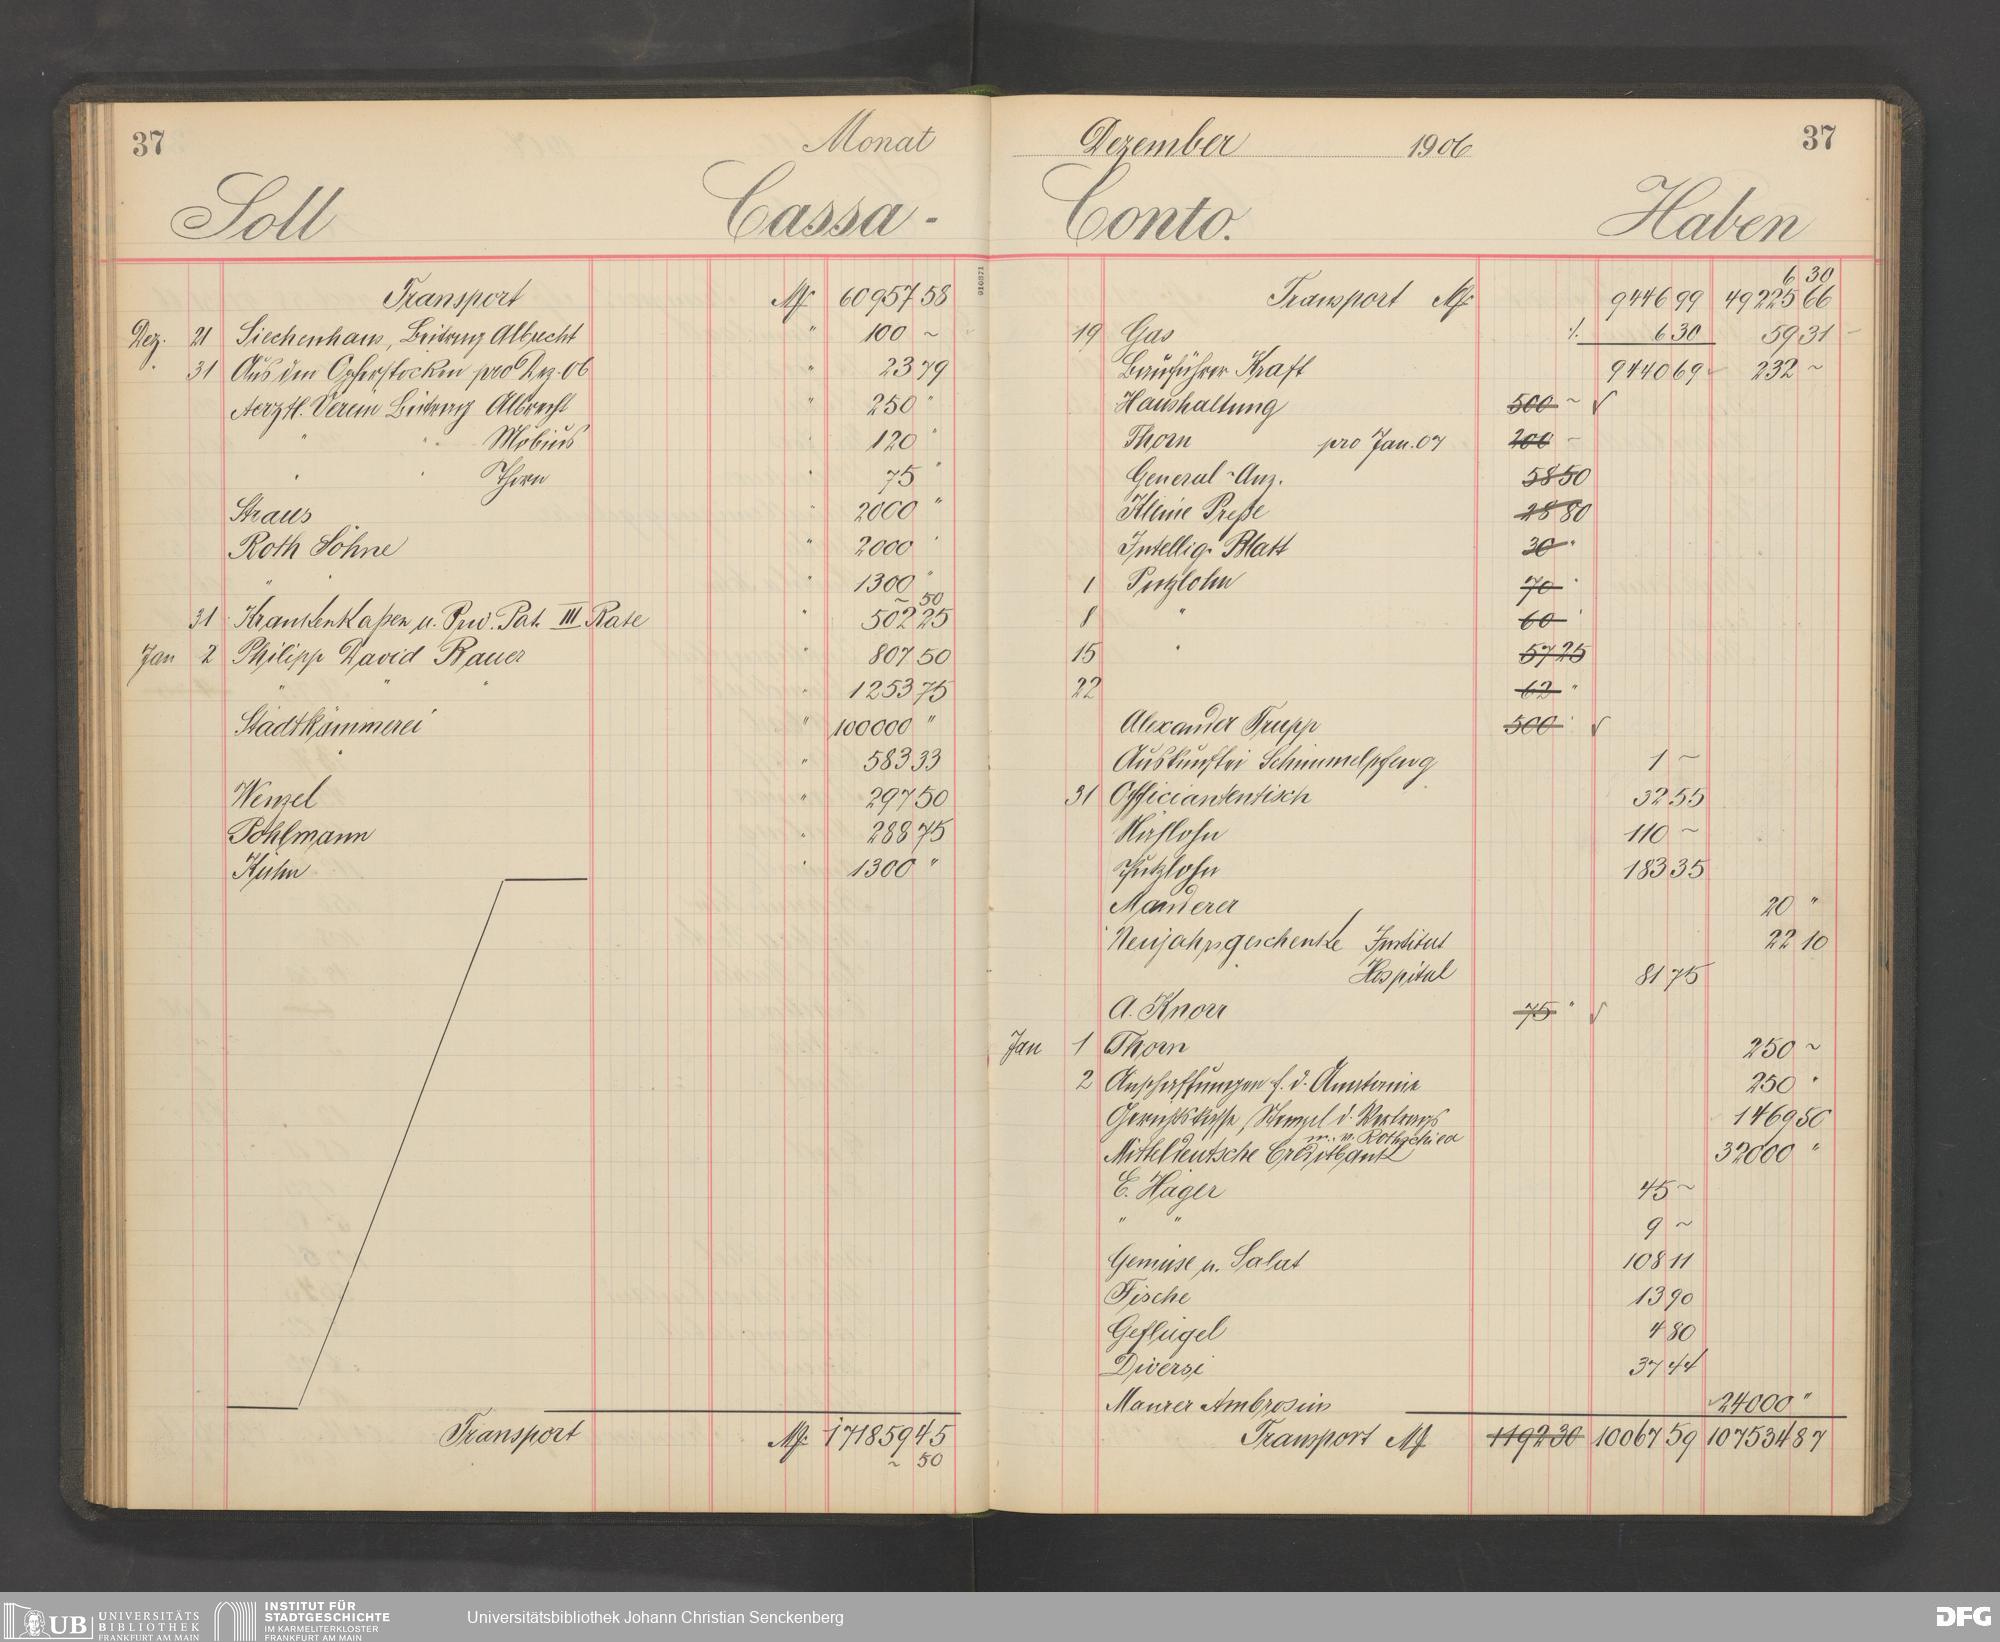 37
Monat
Soll
Cassa -
Transport M 60957 58
Dez. 21 Siechenhaus, Beitrag Albrecht " 100 ~
31 Aus den Opferstöcken pro Dez. 06 " 23 79
Aerztl. Verein Beitrag Albrecht " 250 "
" " Möbius " 120 "
" " Thorn " 75 "
Straus " 2000 "
Roth Söhne " 2000 "
" " " 1300 "
~ 50
31 Krankenkaßen u. Priv. Pat. III Rate " 502 25
Jan 2 Philipp David Bauer " 807 50
" " " " 1253 75
Stadtkämmerei " 100000 "
" " 583 33
Wenzel " 297 50
Pohlmann " 288 75
Kühn " 1300 "
Transport M 171859 45
~ 50
Dezember 1906
37
Conto.
Haben
010871
6 30
Transport M 9446 99 49225 66
19 Gas ./. 6 30 59 31
Bauführer Kraft 9440 69 232 ~
Haushaltung 500 ~
Thorn pro Jan. 07 200 ~
General-Anz. 58 50
Kleine Preße 28 80
Intellig. Blatt 30 "
1 Putzlohn 70 "
8 " 60 "
15 " 57 25
22 62 "
Alexander Trupp 500 "
Auskunftei Schimmelpfeng 1 ~
31 Officiantentisch 32 55
Nählohn 110 ~
Putzlohn 183 35
Manderer 20 "
Neujahrsgeschenke Institut 22 10
Hospital 81 75
A. Knorr 75 "
Jan 1 Thorn 250 ~
2 Anschaffungen f. d. Anatomie 250 "
Gerichtskasse, Stempel d. Vertrags 1469 50
m. v. Rothschild
Mitteldeutsche Creditbank 32000 "
E. Häger 45 ~
" " 9 ~
Gemüse u. Salat 108 11
Fische 13 90
Geflügel 4 80
Diversi 37 44
Maurer Ambrosius 24000 "
Transport M 1192 30 10067 59 107534 87
UB UNIVERSITÄTS
BIBLIOTHEK
FRANKFURT AM MAIN
INSTITUT FÜR
STADTGESCHICHTE
IM KARMELITERKLOSTER
FRANKFURT AM MAIN
Universitätsbibliothek Johann Christian Senckenberg
DFG